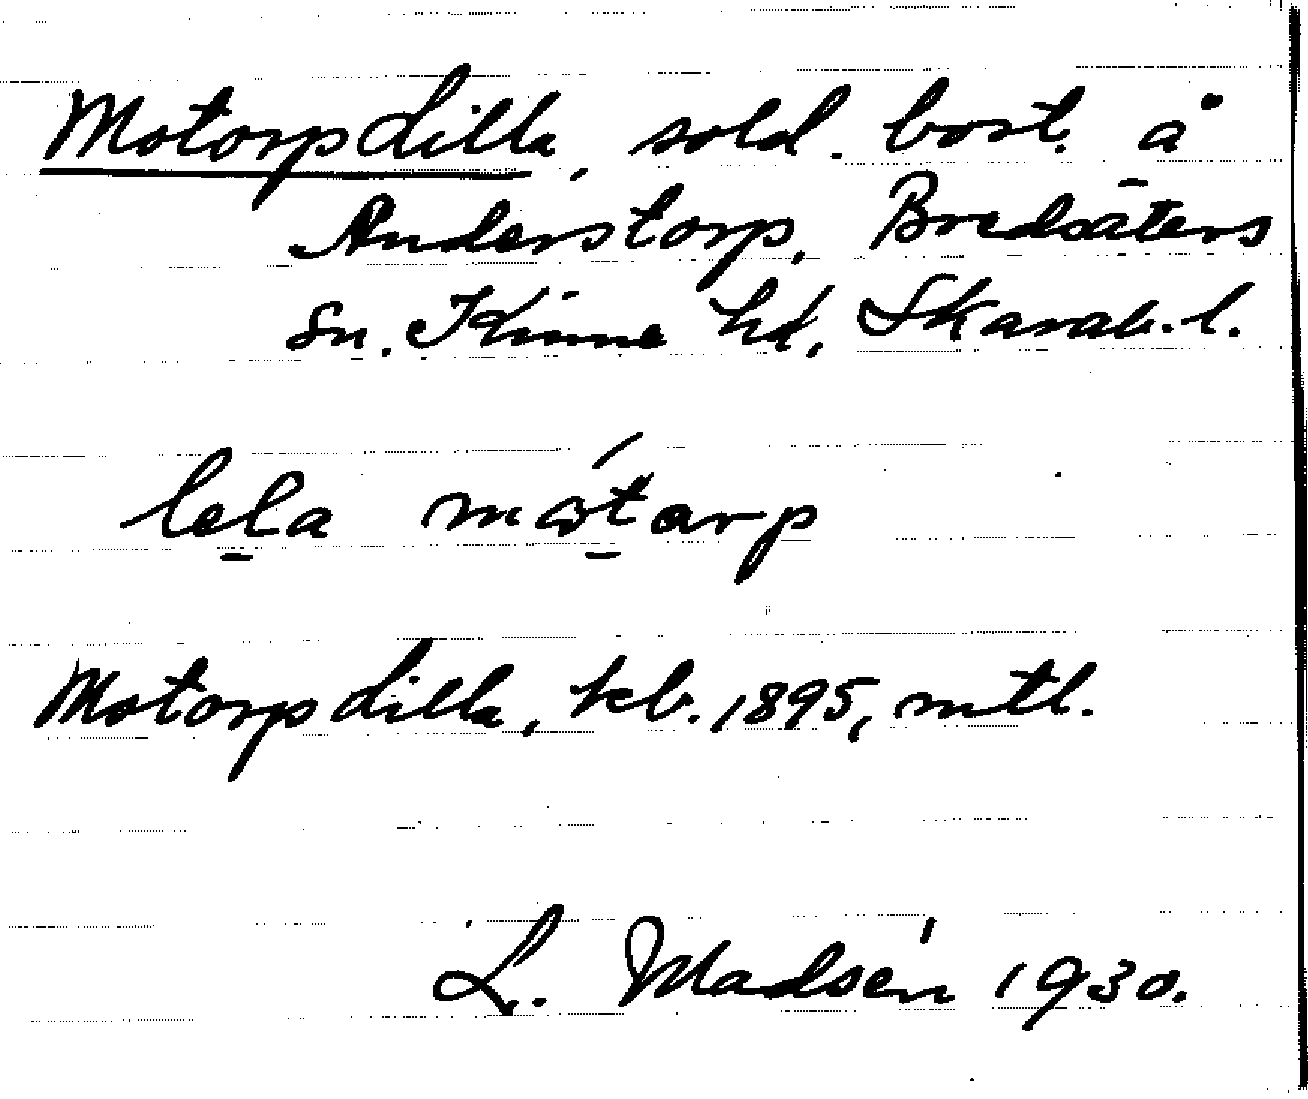 Motorpslilla, sold. bost. å
Anderstorp, Bredsäters
sn. Kinne hd, Skarab. l.
lela motarp
Motorpslilla, kb. 1895, mtl.
L. Madsén 1930.